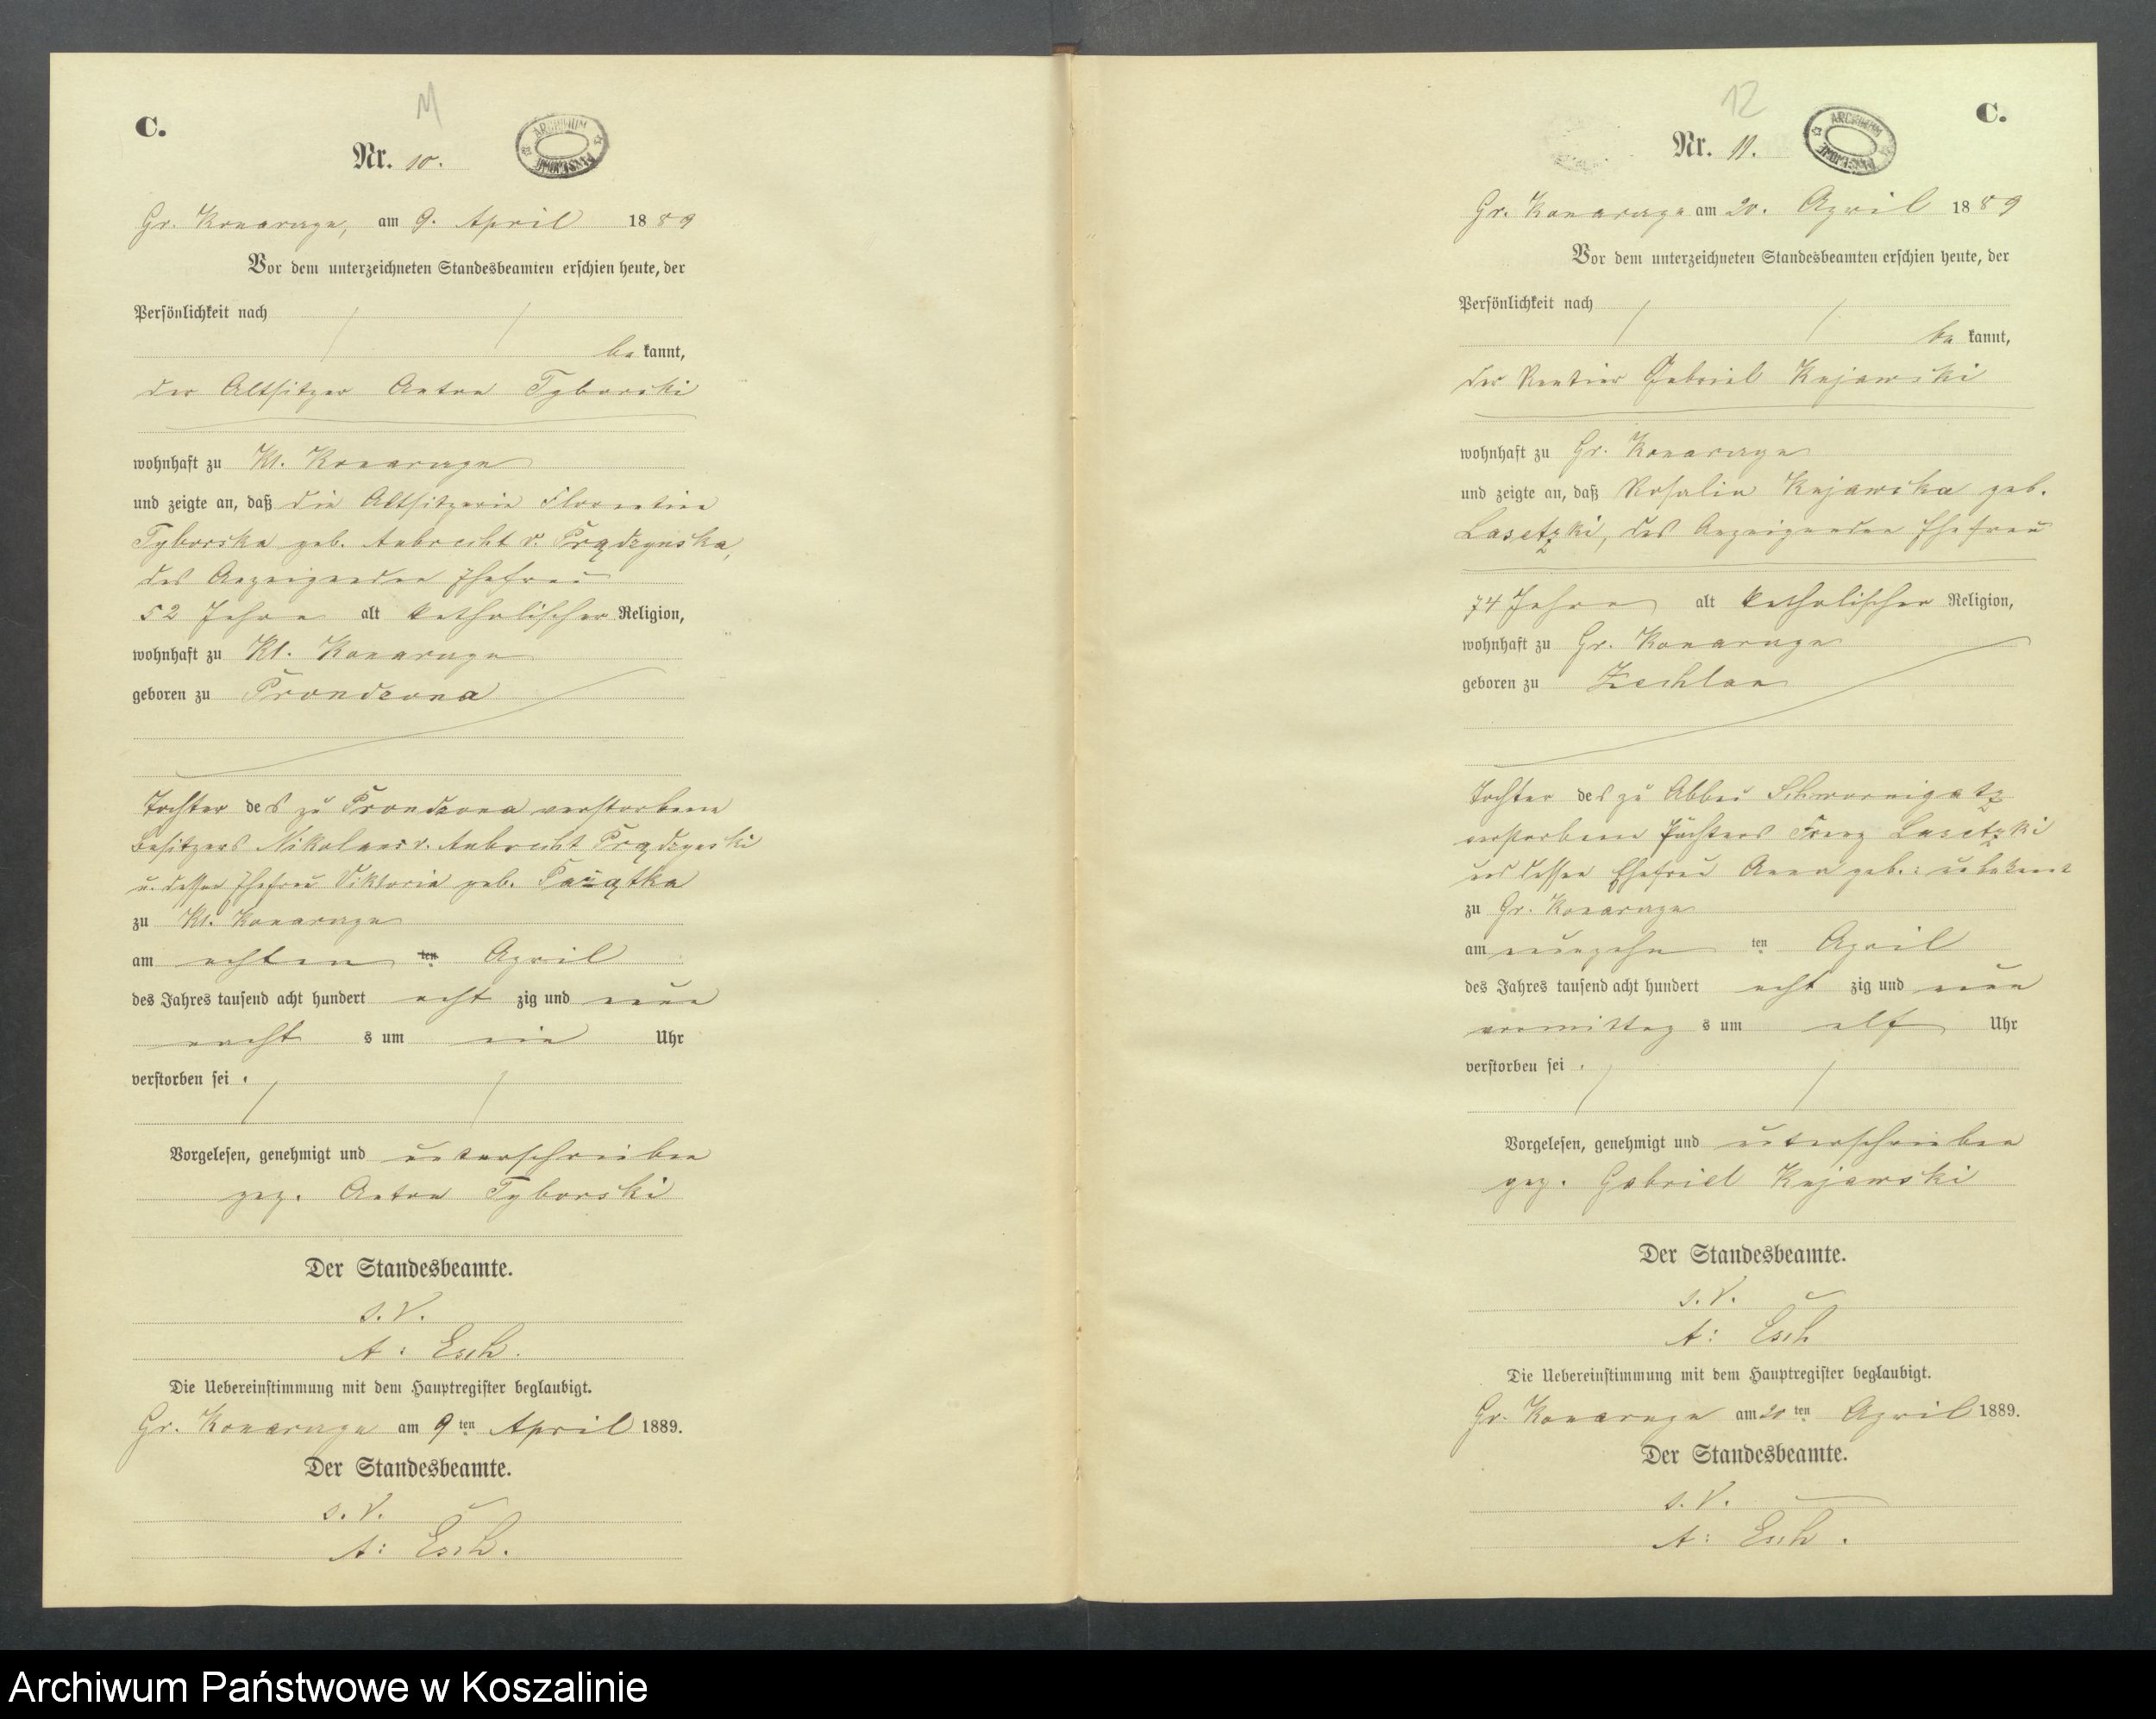 C.
11
Nr. 10.
ARCHIWUM PAŃSTWOWE
Gr. Konarczyn, am 9. April 1889
Vor dem unterzeichneten Standesbeamten erschien heute, der
Persönlichkeit nach
be kannt,
der Altsitzer Anton Tyborski
wohnhaft zu Kl. Konarczyn
und zeigte an, daß die Altsitzerin Florentine
Tyborska geb. Aubrecht v. Prądzynska,
des Anzeigenden Ehefrau
52 Jahre alt katholischer Religion,
wohnhaft zu Kl. Konarczyn
geboren zu Prondzona
Tochter des zu Prondzona verstorbenen
Besitzers Nikolaus v. Aubrecht Prądzynski
u. dessen Ehefrau Viktoria geb.
zu Kl. Konarczyn
am achten ten April
des Jahres tausend acht hundert acht zig und neun
nacht s um ein Uhr
verstorben sei.
Vorgelesen, genehmigt und unterschrieben
gez. Anton Tyborski
Der Standesbeamte.
s. V.
A: Esch.
Die Uebereinstimmung mit dem Hauptregister beglaubigt.
Gr. Konarczyn am 9 ten April 1889.
Der Standesbeamte.
s. V.
A: Esch.
12
C.
Nr. 11.
ARCHIWUM PAŃSTWOWE
Gr. Konarczyn am 20. April 1889
Vor dem unterzeichneten Standesbeamten erschien heute, der
Persönlichkeit nach
be kannt,
der Rentier Gabriel Kujawski
wohnhaft zu Gr. Konarczyn
und zeigte an, daß Rosalie Kujawska geb.
Lasetzki, des Anzeigenden Ehefrau
74 Jahre alt katholischer Religion,
wohnhaft zu Gr. Konarczyn
geboren zu Zechlau
Tochter des zu Abbau Schwornigatz
verstorbenen Pächters Franz Lasetzki
und dessen Ehefrau Anna geb.: unbekannt
zu Gr. Konarczyn
am neunzehn ten April
des Jahres tausend acht hundert acht zig und neun
vormittag s um elf Uhr
verstorben sei.
Vorgelesen, genehmigt und unterschrieben
gez. Gabriel Kujawski
Der Standesbeamte.
s. V.
A: Esch
Die Uebereinstimmung mit dem Hauptregister beglaubigt.
Gr. Konarczyn am 20 ten April 1889.
Der Standesbeamte.
s. V.
A: Esch.
Archiwum Państwowe w Koszalinie